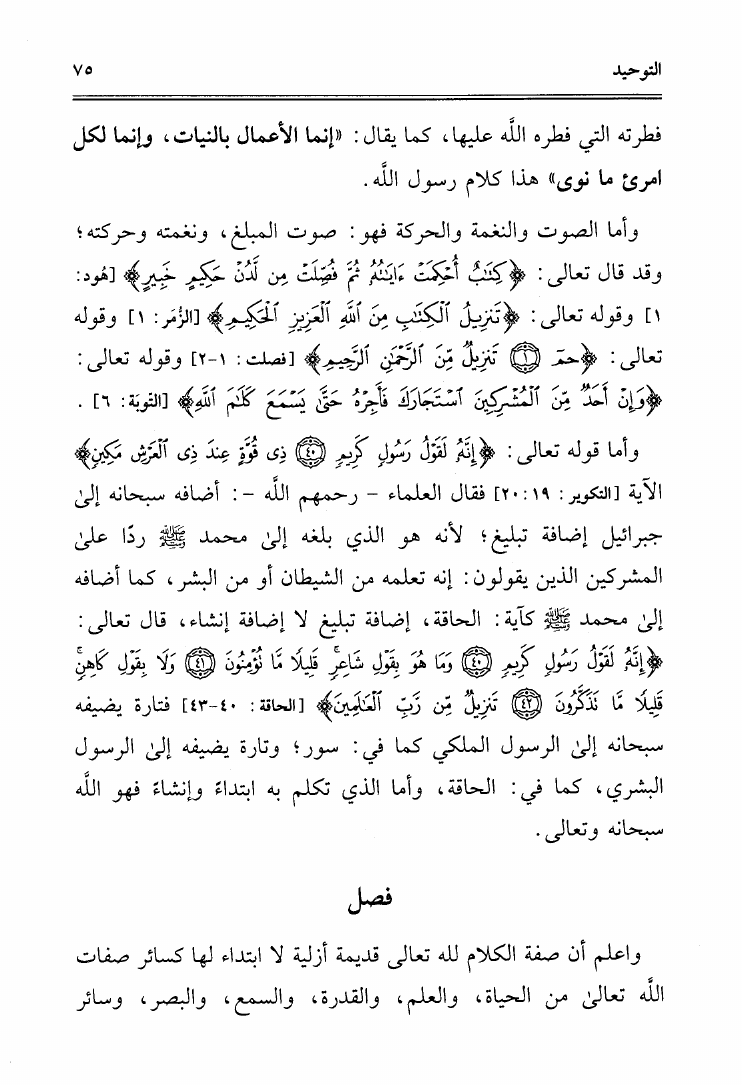 التوحيد ٧٥
فطرته التي فطره اللَّه عليها، كما يقال: «إنما الأعمال بالنيات، وإنما لكل
امرئ ما نوى» هذا كلام رسول اللَّه.
وأما الصوت والنغمة والحركة فهو: صوت المبلغ، ونغمته وحركته؛
وقد قال تعالى: ﴿كِتَٰبٌ أُحْكِمَتْ ءَايَٰتُهُۥ ثُمَّ فُصِّلَتْ مِن لَّدُنْ حَكِيمٍ خَبِيرٍ﴾ [هُود:
١] وقوله تعالى: ﴿تَنزِيلُ ٱلْكِتَٰبِ مِنَ ٱللَّهِ ٱلْعَزِيزِ ٱلْحَكِيمِ﴾ [الزُّمَر: ١] وقوله
تعالى: ﴿حمٓ ١ تَنزِيلٌ مِّنَ ٱلرَّحْمَٰنِ ٱلرَّحِيمِ﴾ [فصلت: ١-٢] وقوله تعالى:
﴿وَإِنْ أَحَدٌ مِّنَ ٱلْمُشْرِكِينَ ٱسْتَجَارَكَ فَأَجِرْهُ حَتَّىٰ يَسْمَعَ كَلَٰمَ ٱللَّهِ﴾ [التّوبَة: ٦].
وأما قوله تعالى: ﴿إِنَّهُۥ لَقَوْلُ رَسُولٍ كَرِيمٍ ٤٠ ذِى قُوَّةٍ عِندَ ذِى ٱلْعَرْشِ مَكِينٍ﴾
الآية [التكوير: ١٩:٢٠] فقال العلماء - رحمهم اللَّه -: أضافه سبحانه إلىٰ
جبرائيل إضافة تبليغ؛ لأنه هو الذي بلغه إلىٰ محمد ﷺ ردًا علىٰ
المشركين الذين يقولون: إنه تعلمه من الشيطان أو من البشر، كما أضافه
إلىٰ محمد ﷺ كآية: الحاقة، إضافة تبليغ لا إضافة إنشاء، قال تعالى:
﴿إِنَّهُۥ لَقَوْلُ رَسُولٍ كَرِيمٍ ٤٠ وَمَا هُوَ بِقَوْلِ شَاعِرٍ ۚ قَلِيلًا مَّا نُؤْمِنُونَ ٤١ وَلَا بِقَوْلِ كَاهِنٍ ۚ
قَلِيلًا مَّا نَذَكَّرُونَ ٤٢ تَنزِيلٌ مِّن رَّبِّ ٱلْعَٰلَمِينَ﴾ [الحاقة: ٤٠-٤٣] فتارة يضيفه
سبحانه إلىٰ الرسول الملكي كما في: سور؛ وتارة يضيفه إلىٰ الرسول
البشري، كما في: الحاقة، وأما الذي تكلم به ابتداءً وإنشاءً فهو اللَّه
سبحانه وتعالى.
فصل
واعلم أن صفة الكلام لله تعالى قديمة أزلية لا ابتداء لها كسائر صفات
اللَّه تعالىٰ من الحياة، والعلم، والقدرة، والسمع، والبصر، وسائر